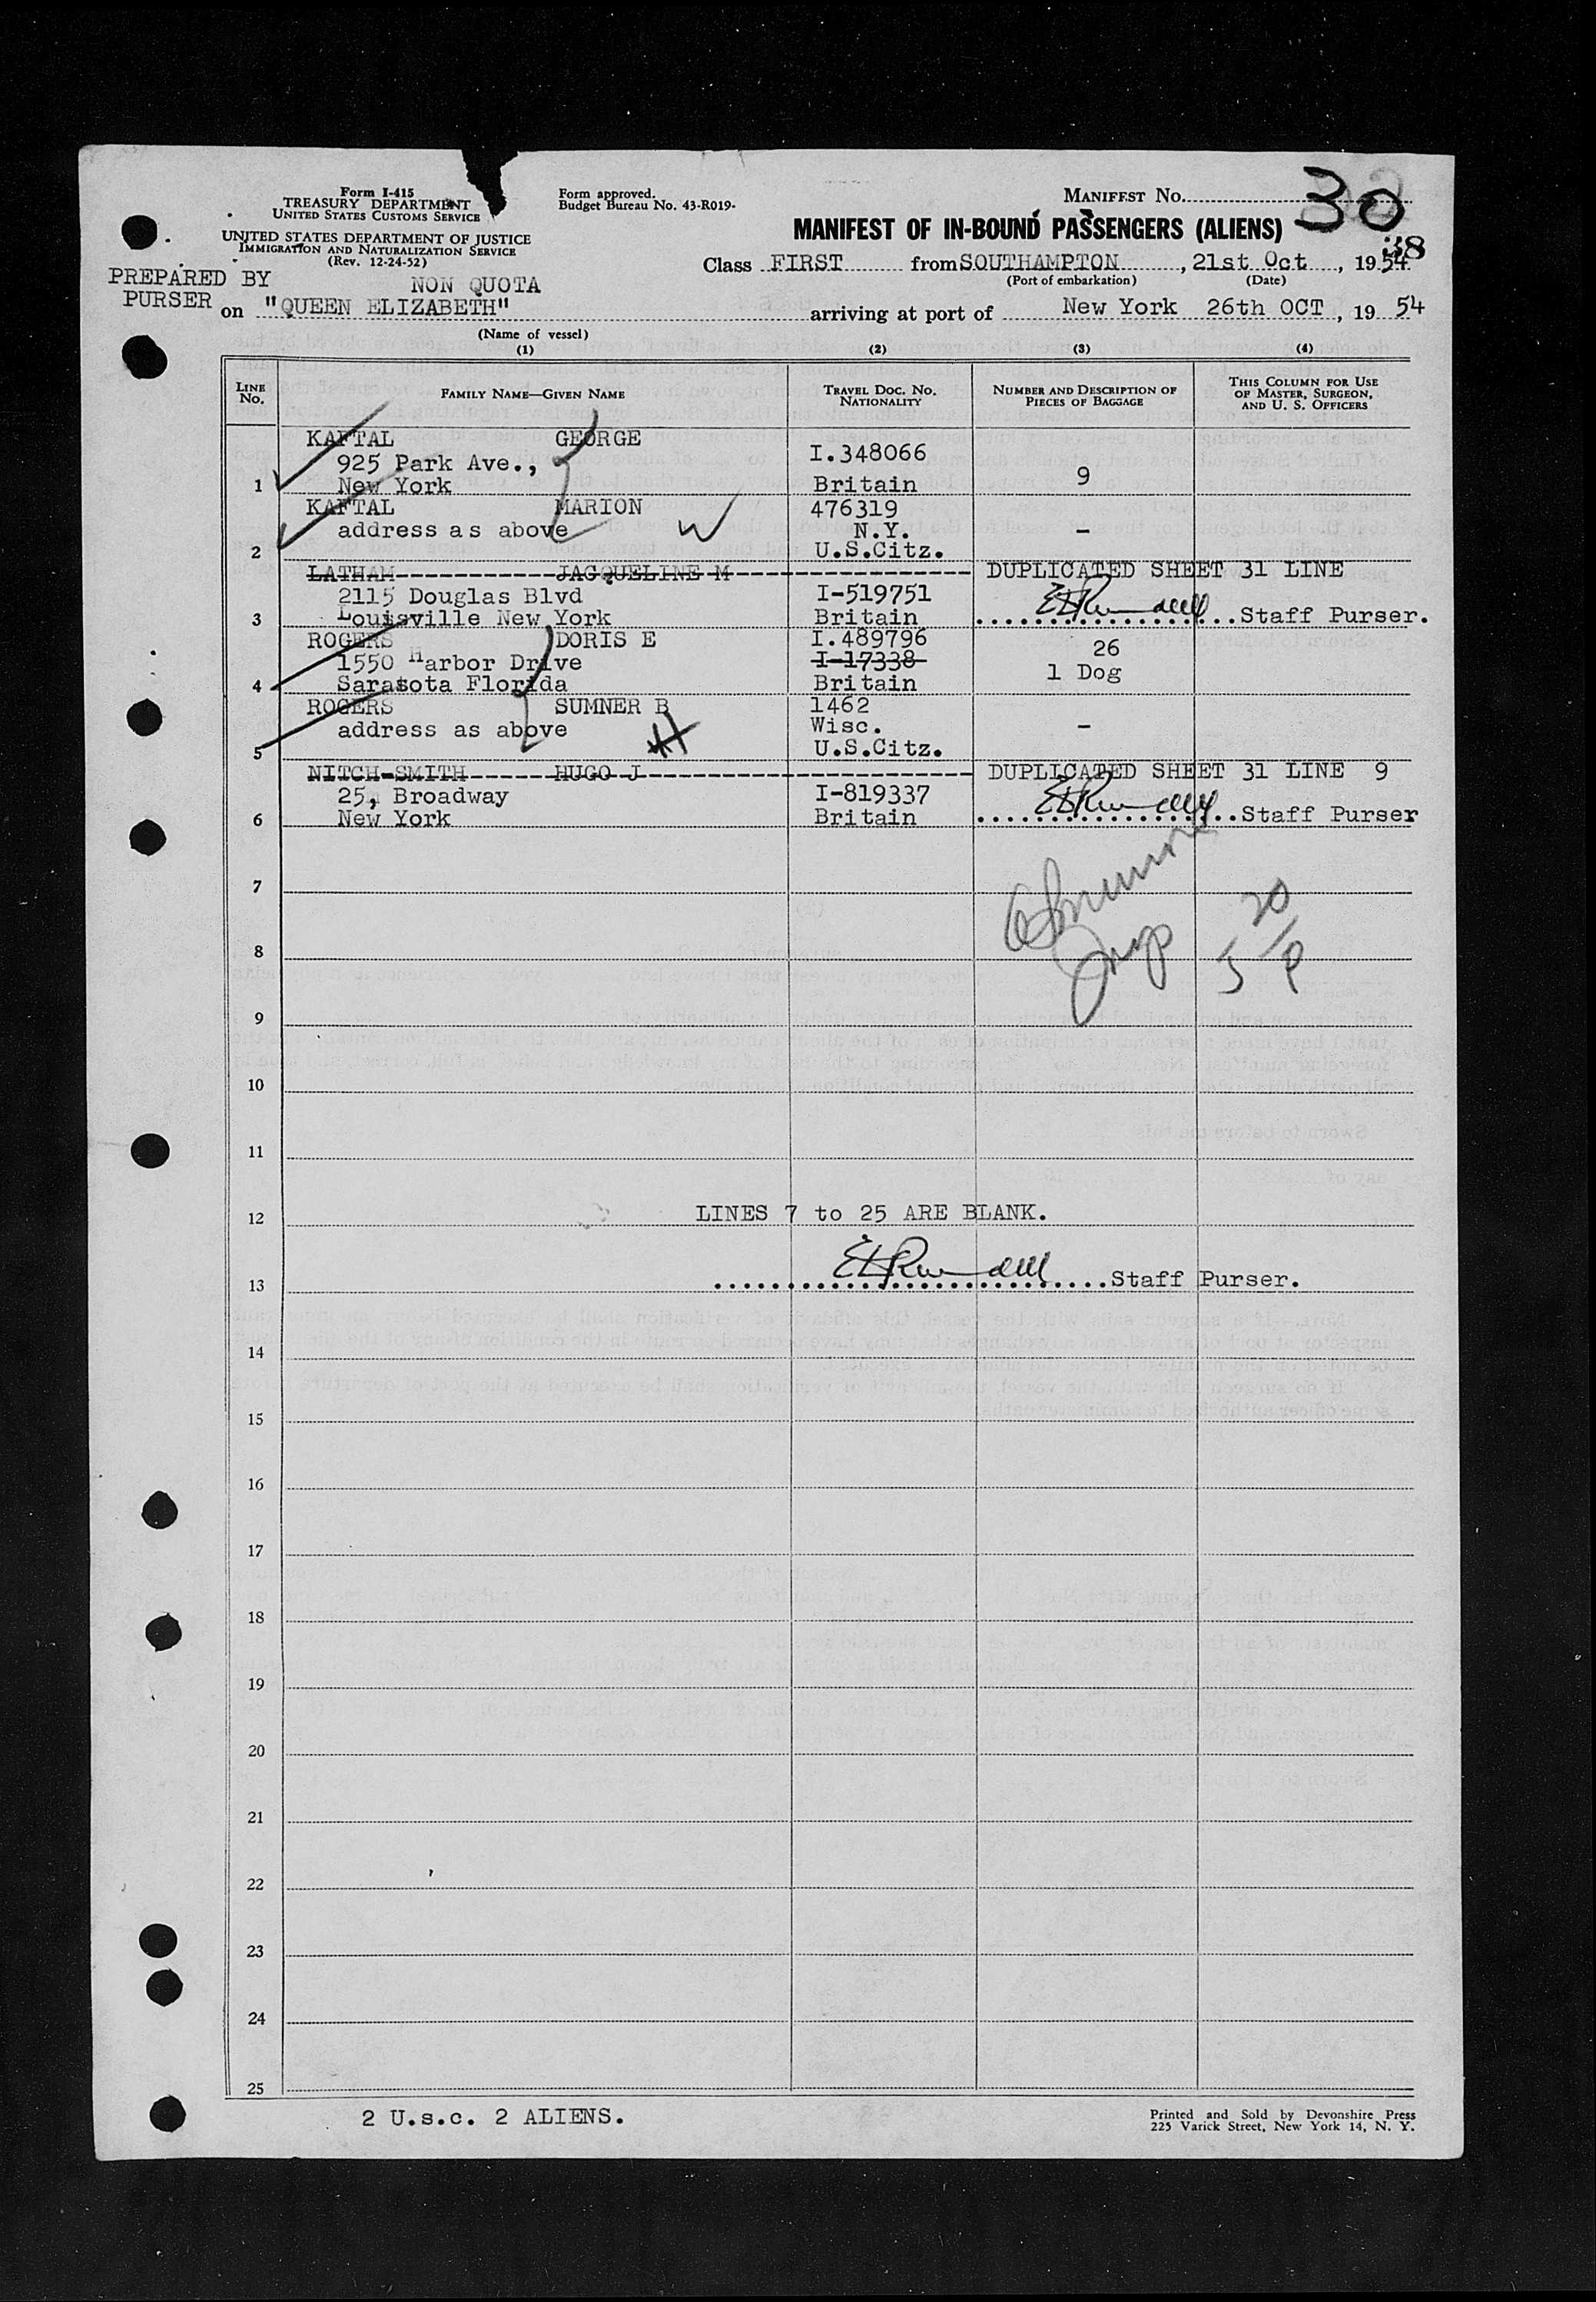 Form I-415
TREASURY DEPARTMENT
UNITED STATES CUSTOMS SERVICE
Form approved.
Budget Bureau No. 43-R019-
MANIFEST No. 30
UNITED STATES DEPARTMENT OF JUSTICE
IMMIGRATION AND NATURALIZATION SERVICE
(Rev. 12-24-52)
MANIFEST OF IN-BOUND PASSENGERS (ALIENS)
38
Class FIRST from SOUTHAMPTON, 21st Oct, 1954.
(Port of embarkation) (Date)
PREPARED BY
PURSER
NON QUOTA
on "QUEEN ELIZABETH" arriving at port of New York 26th OCT, 19 54
(Name of vessel)
(1) (2) (3) (4)
LINE No. FAMILY NAME—GIVEN NAME TRAVEL DOC. NO. NATIONALITY NUMBER AND DESCRIPTION OF PIECES OF BAGGAGE THIS COLUMN FOR USE OF MASTER, SURGEON, AND U. S. OFFICERS
KAFTAL GEORGE
925 Park Ave., I.348066
1 New York Britain 9
KAFTAL MARION 476319
address as above W N.Y. –
2 U.S.Citz.
LATHAM JACQUELINE M DUPLICATED SHEET 31 LINE
2115 Douglas Blvd I-519751
3 Louisville New York Britain Staff Purser.
ROGERS DORIS E I.489796 26
1550 Harbor Drive I-17338 1 Dog
4 Sarasota Florida Britain
ROGERS SUMNER B 1462
address as above H Wisc. –
5 U.S.Citz.
NITCH-SMITH HUGO J DUPLICATED SHEET 31 LINE 9
25, Broadway I-819337
6 New York Britain Staff Purser
7
8
9
10
11
12 LINES 7 to 25 ARE BLANK.
13 Staff Purser.
14
15
16
17
18
19
20
21
22
23
24
25
2 U.s.c. 2 ALIENS.
Printed and Sold by Devonshire Press
225 Varick Street, New York 14, N. Y.